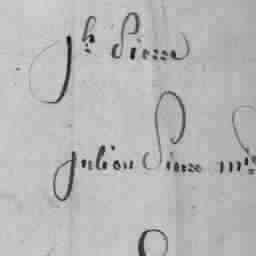 Jh. Pierre
Julien Pierre m